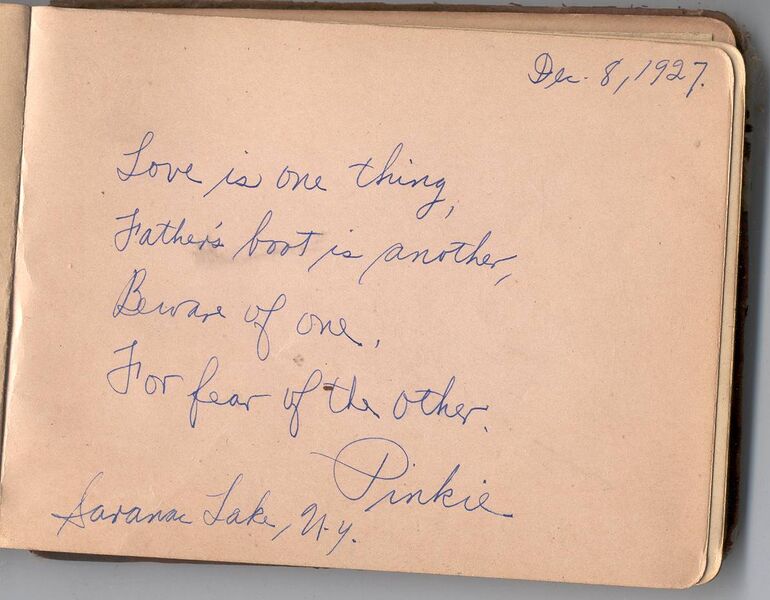 Dec. 8, 1927.
Love is one thing,
Father's boot is another,
Beware of one,
For fear of the other.
Pinkie
Saranac Lake, N.Y.